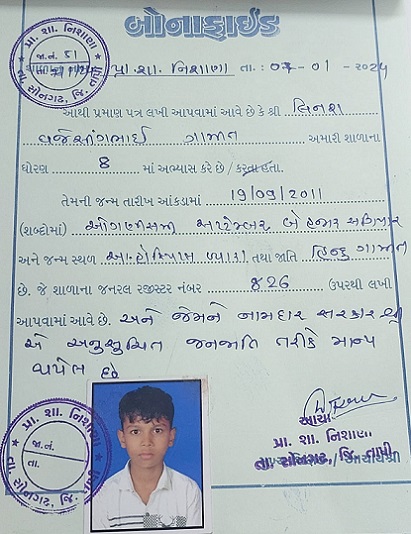 બોનાફાઈડ
પ્રા. શા. નિશાણા
જા.નં. 51
તા. સોનગઢ, જિ. તાપી
પ્રા. શા. નિશાણા તા. : 07-01-2024
આથી પ્રમાણ પત્ર લખી આપવામાં આવે છે કે શ્રી
ગામીત અમારી શાળાના
ધોરણ 8 માં અભ્યાસ કરે છે / કરતા હતા.
તેમની જન્મ તારીખ આંકડામાં 19/09/2011
(શબ્દોમાં) ઓગણીસમી સપ્ટેમ્બર બે હજાર અગિયાર
અને જન્મ સ્થળ તથા જાતિ હિન્દુ ગામીત
છે. જે શાળાના જનરલ રજીસ્ટર નંબર 826 ઉપરથી લખી
આપવામાં આવે છે. અને જેમને નામદાર સરકાર શ્રી
એ અનુસુચિત જનજાતિ તરીકે માન્ય
થયેલ છે
પ્રા. શા. નિશાણા
જા.નં.
તા.
તા. સોનગઢ, જિ. તાપી
આચાર્ય
પ્રા. શા. નિશાણા
તા. સોનગઢ, જિ. તાપી